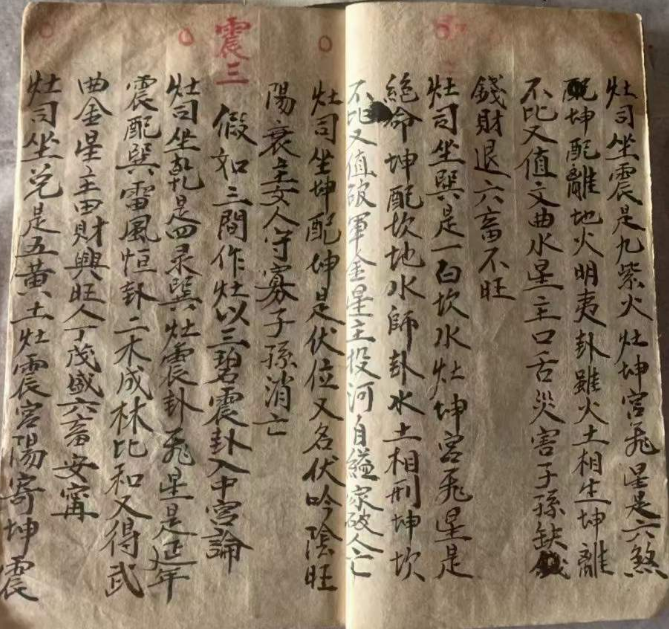 灶司坐震是九紫火灶坤宮飛星是六煞
配坤配離地火明夷卦雖火土相生坤離
不比又值文曲水星主口舌災害子孫缺
錢財退六畜不旺
灶司坐巽是一白坎水灶坤宮飛星是
絕命坤配坎地水師卦水土相刑坤坎
不比又值破軍金星主投河自縊家破人亡
灶司坐坤配坤是伏位又名伏吟陰旺
陽衰主女人守寡子孫消亡
震三
假如三間作灶以三碧震卦入中宮論
灶司坐乾是四录巽灶震卦飛星是延年
震配巽雷風恒卦二木成林比和又得武
曲金星主田財興旺人丁茂盛六畜安寧
灶司坐兌是五黃土灶震宮陽寄坤震